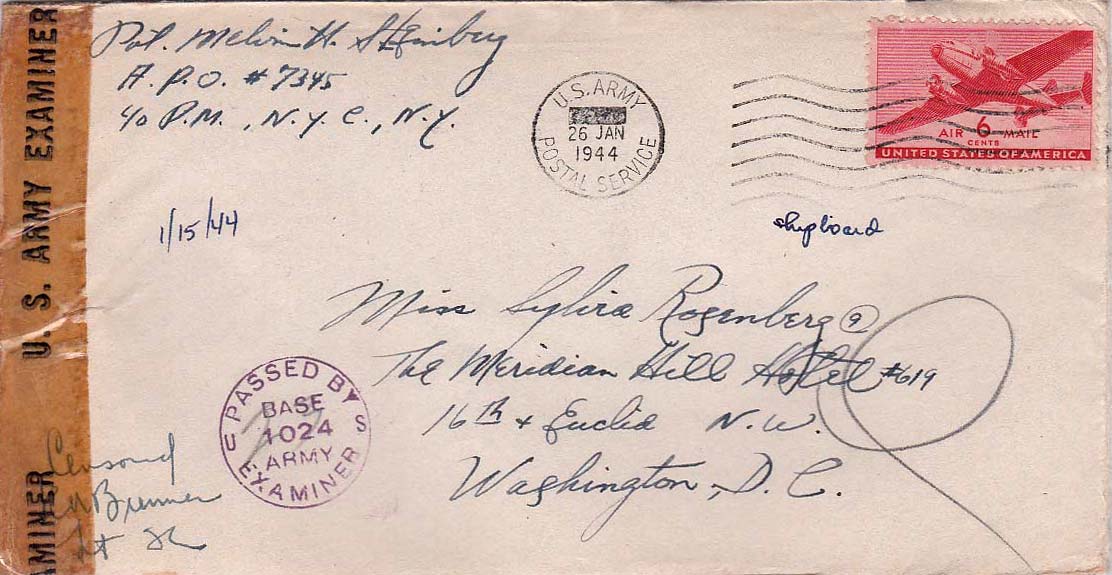 Pvt. Melvin H. Steinberg
A.P.O. # 7345
c/o P.M., N.Y.C., N.Y.
U.S. ARMY
26 JAN
1944
POSTAL SERVICE
AIR 6 MAIL
CENTS
UNITED STATES OF AMERICA
1/15/44
shipboard
Miss Sylvia Rosenberg 9
The Meridian Hill Hotel #619
16th & Euclid N.W.
Washington, D.C.
PASSED BY
BASE
1024
ARMY
EXAMINER
U S
Censored
Brenner
Lt
U. S. ARMY EXAMINER
AMINER